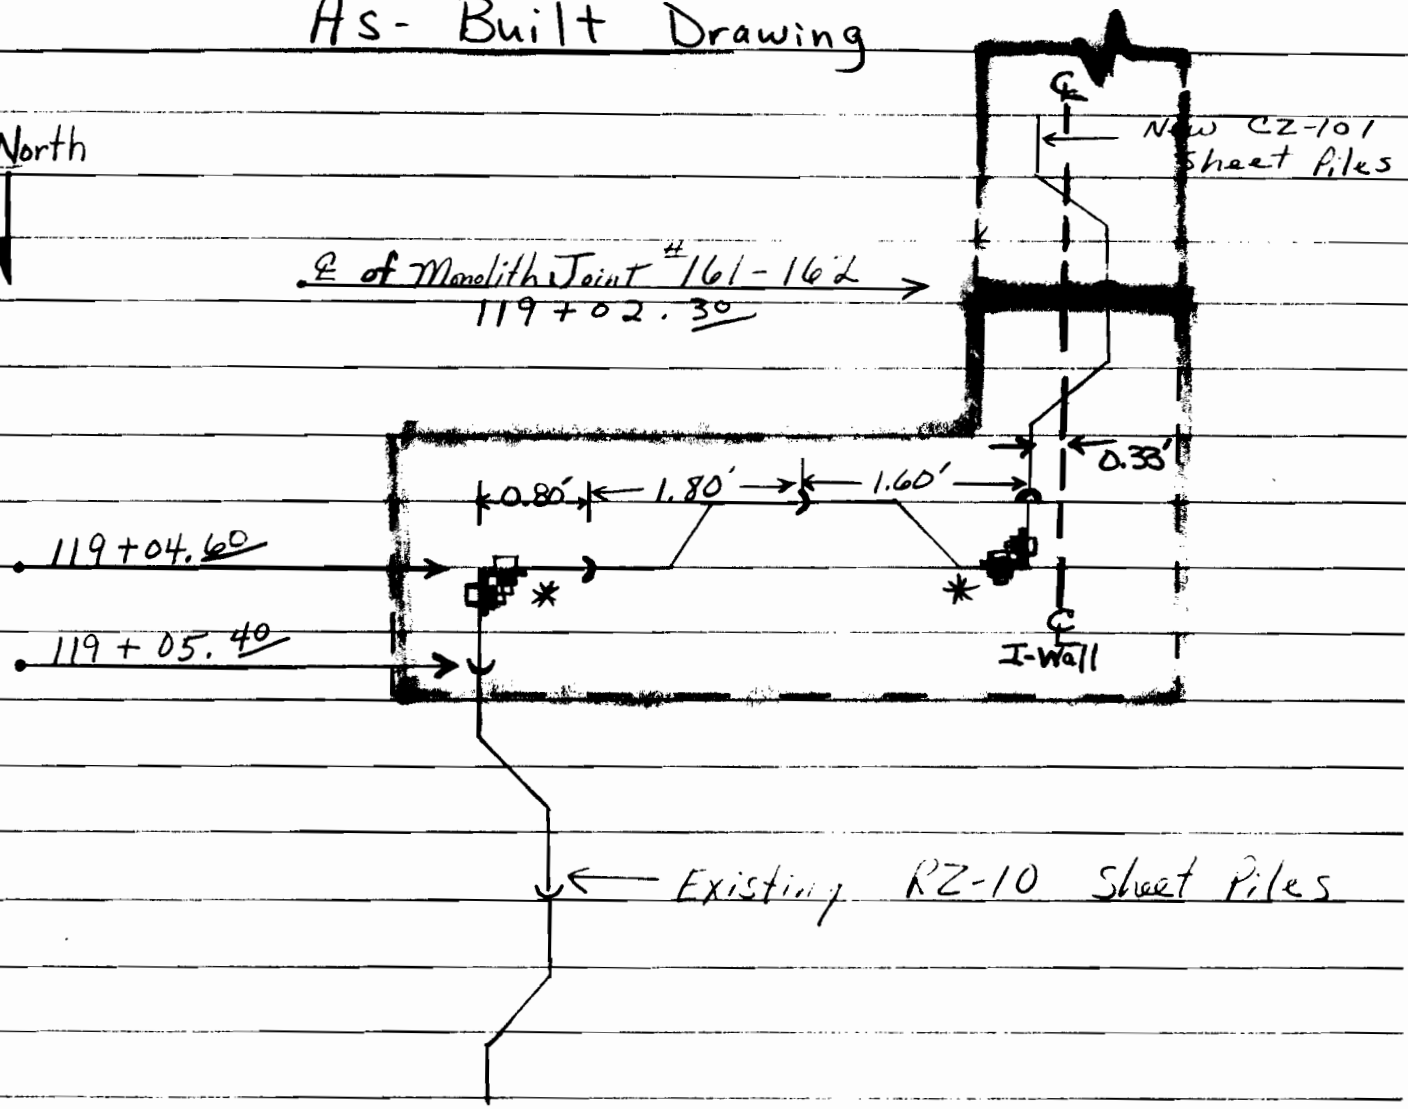 As- Built Drawing
North
℄
New CZ-101
Sheet Piles
℄ of Monolith Joint #161-162
119+02.30
0.33'
0.80' 1.80' 1.60'
119+04.60
* *
119+05.40
℄
I-Wall
Existing RZ-10 Sheet Piles